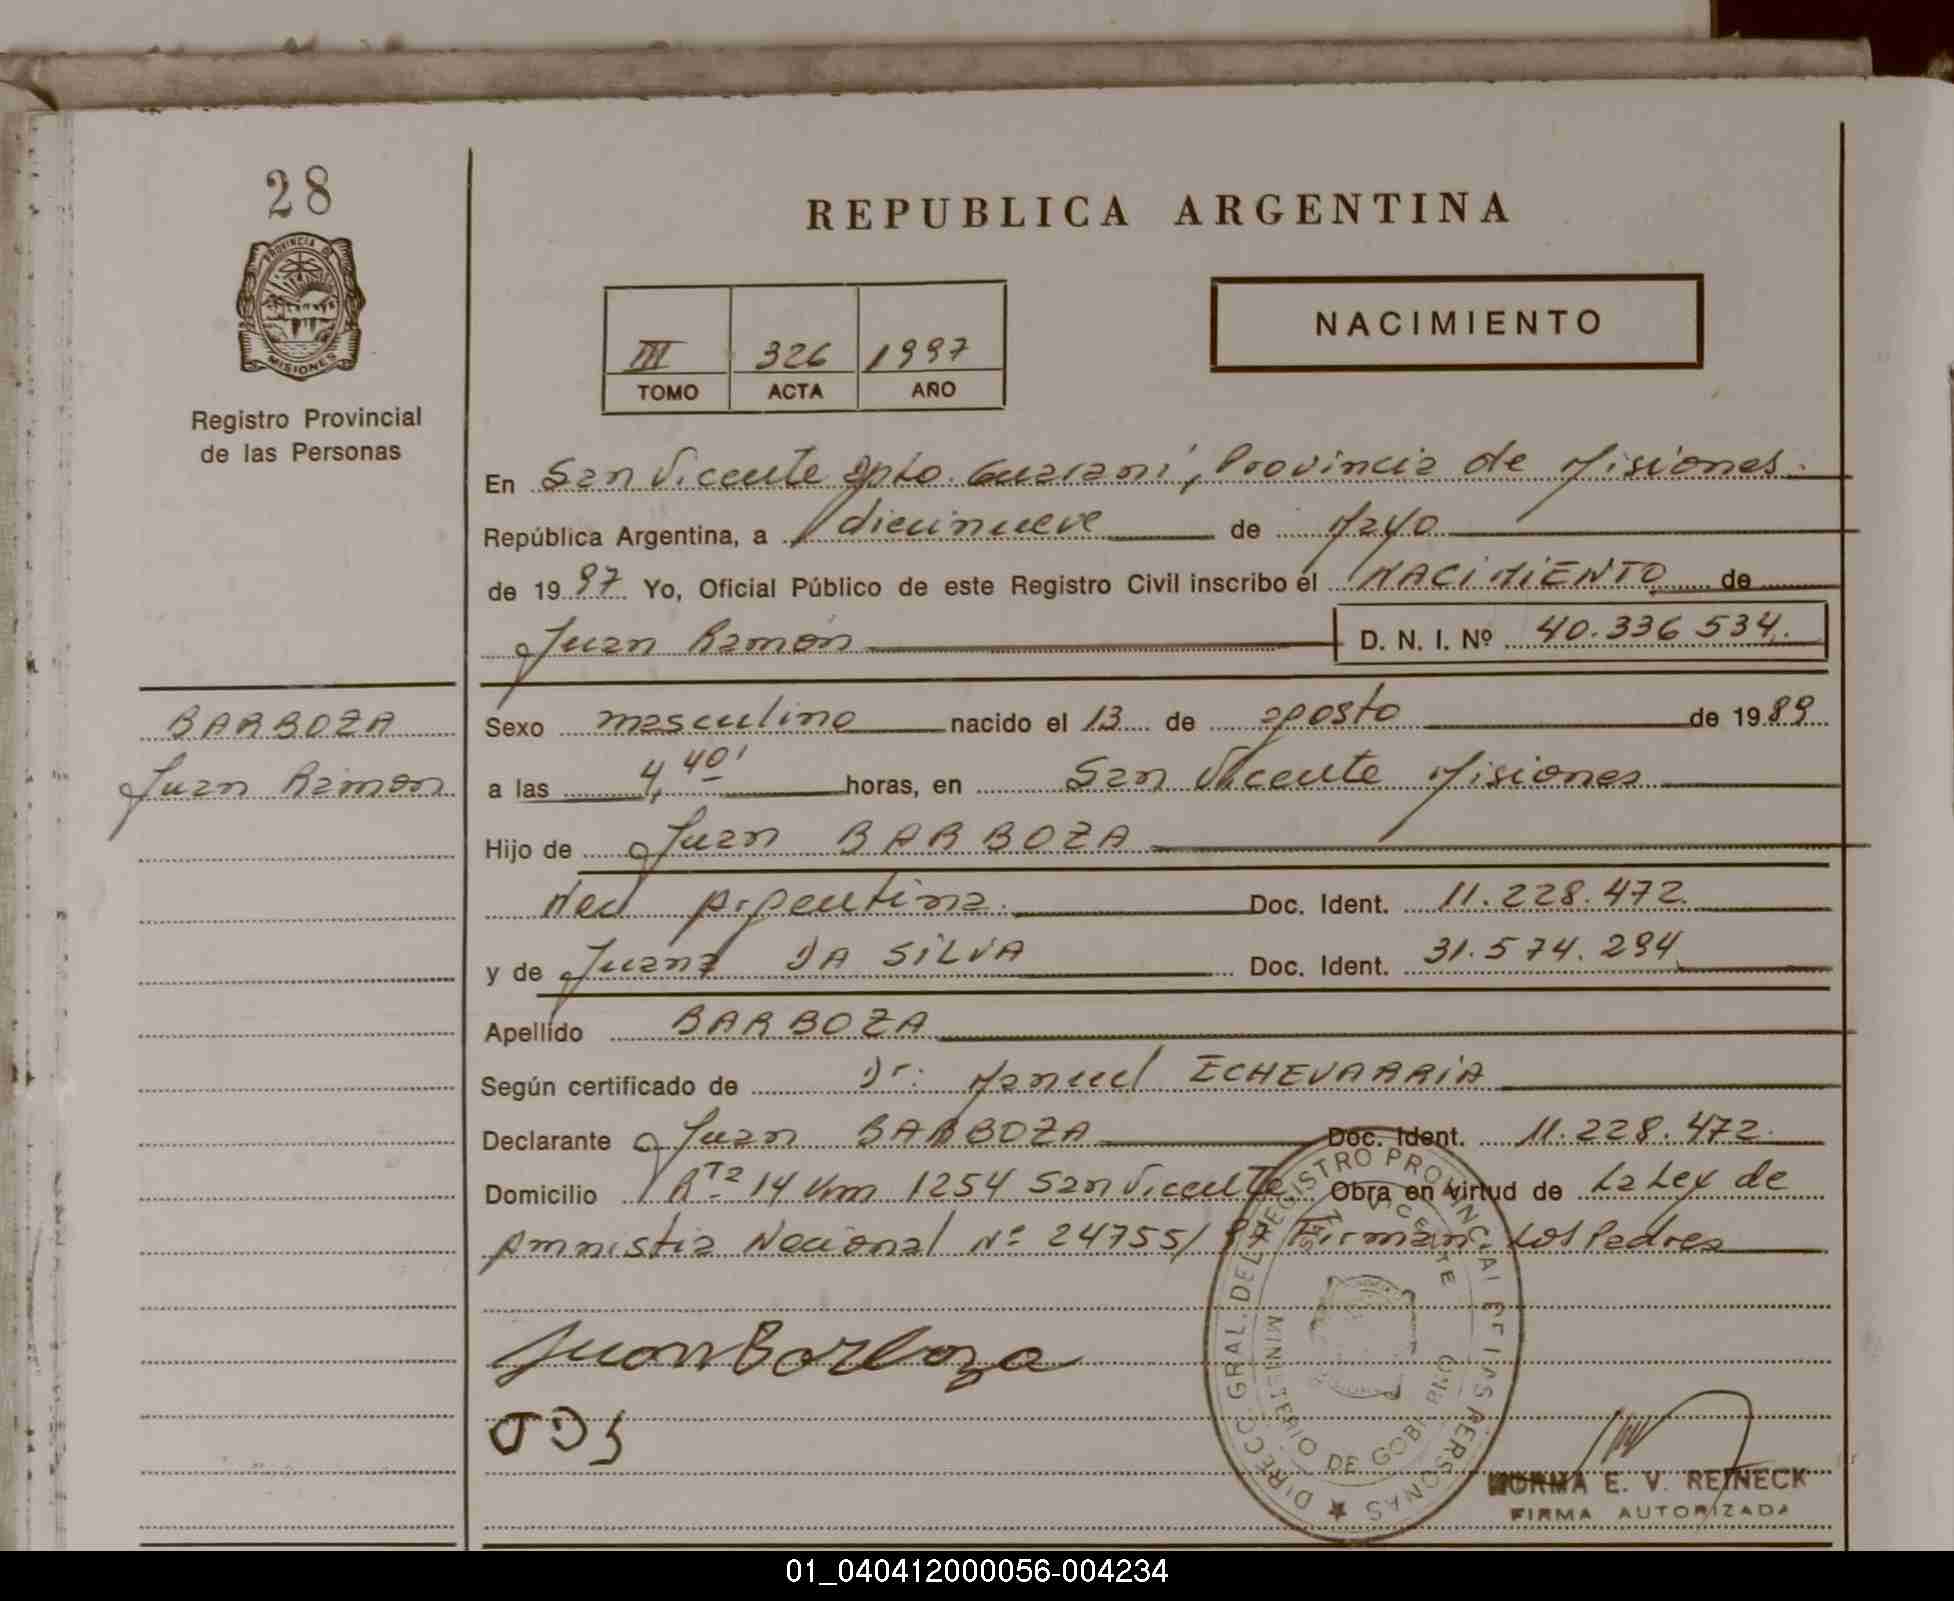 28
PROVINCIA DE
MISIONES
Registro Provincial
de las Personas
REPUBLICA ARGENTINA
III 326 1997
TOMO ACTA AÑO
NACIMIENTO
En San Vicente Dpto. Guaraní, Provincia de Misiones.
República Argentina, a diecinueve de Mayo
de 1997 Yo, Oficial Público de este Registro Civil inscribo el NACIMIENTO de
Juan Ramón D. N. I. Nº 40.336 534.
BARBOZA
Juan Ramon
Sexo masculino nacido el 13 de agosto de 1989
a las 4,40' horas, en San Vicente Misiones
Hijo de Juan BARBOZA
Nac Argentina. Doc. Ident. 11.228.472.
y de Juana DA SILVA Doc. Ident. 31.574.294
Apellido BARBOZA
Según certificado de Dr. Manuel ECHEVARRIA
Declarante Juan BARBOZA Doc. Ident. 11.228.472.
Domicilio Rta 14 Km 1254 San Vicente Obra en virtud de La Ley de
Amnistia Nacional Nº 24755/97 Firman los Padres
Juan Barboza
JDS
DIRECC. GRAL. DEL REGISTRO PROVINCIAL DE LAS PERSONAS
SAN VICENTE
MINISTERIO DE GOBIERNO
NORMA E. V. REINECK
FIRMA AUTORIZADA
01_040412000056-004234